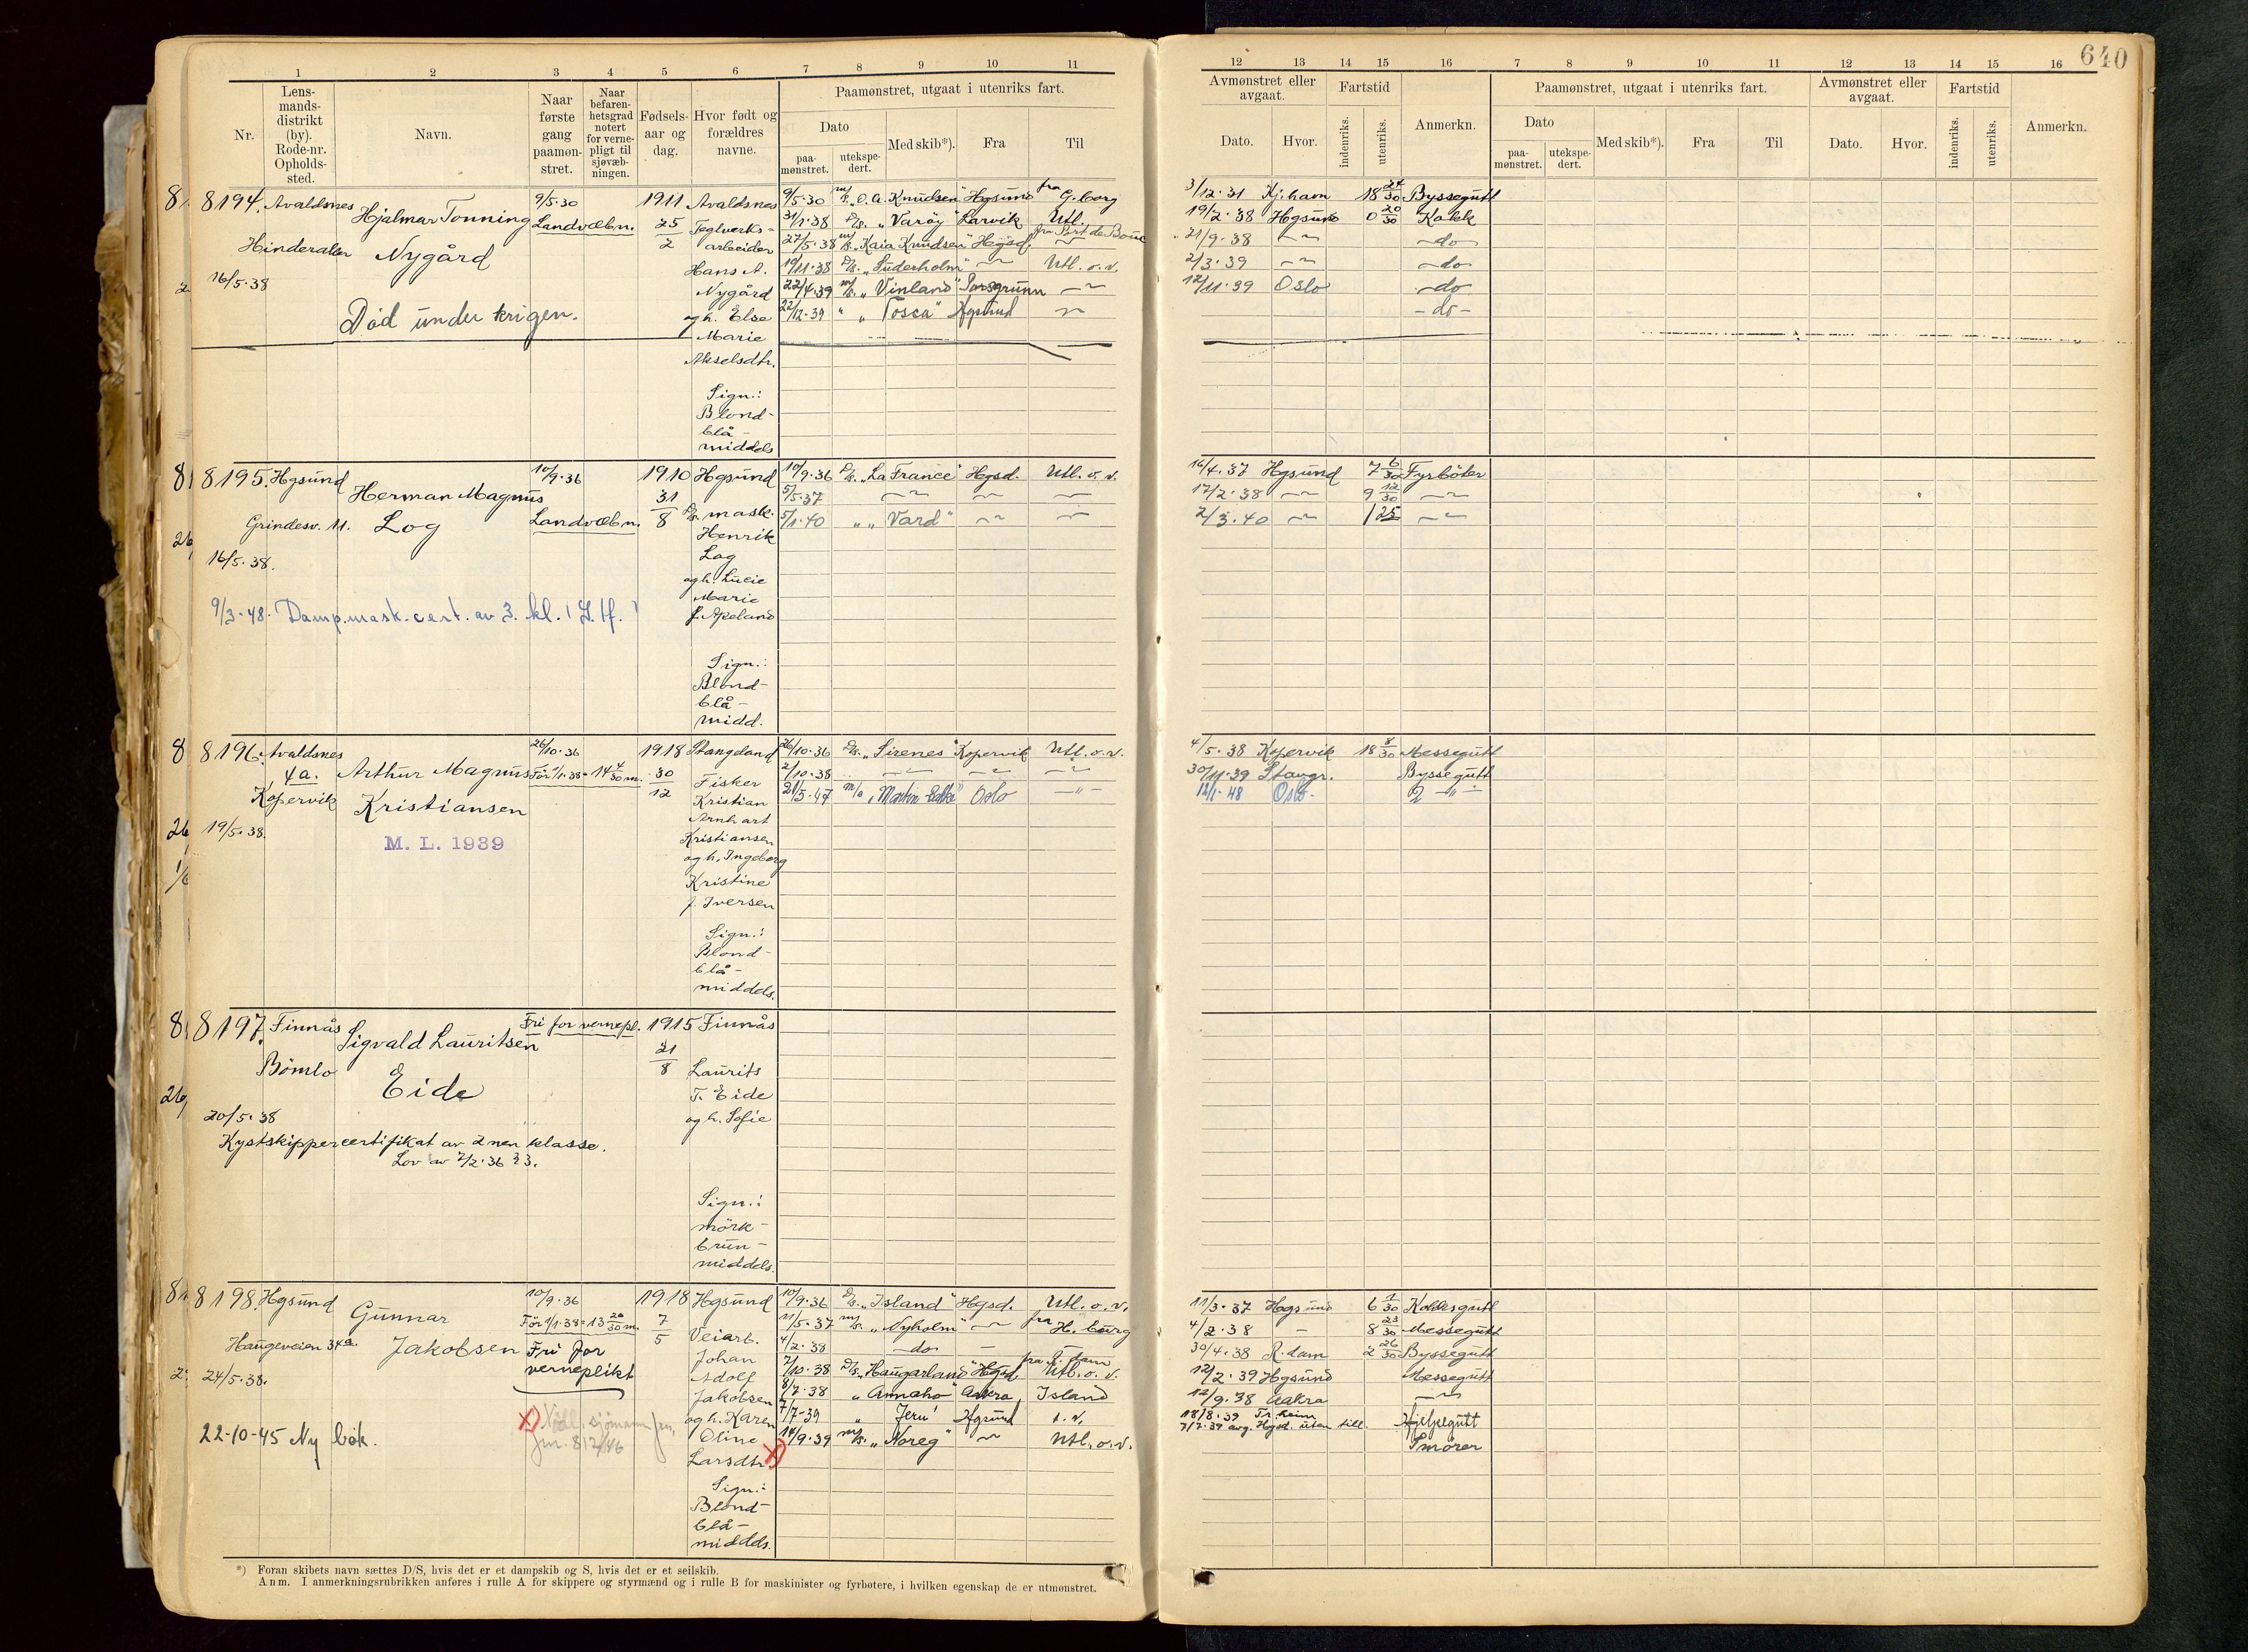 640
1 2 3 4 5 6 7 8 9 10 11
12 13 14 15 16 7 8 9 10 11 12 13 14 15 16
Nr.
Lens-
mands-
distrikt
(by).
Rode-nr.
Opholds-
sted.
Navn.
Naar
første
gang
paamøn-
stret.
Naar
befaren-
hetsgrad
notert
for verne-
pligt til
sjøvæb-
ningen.
Fødsels-
aar og
dag.
Hvor født og
forældres
navne.
Paamønstret, utgaat i utenriks fart.
Dato
paa-
mønstret.
utekspe-
dert.
Med skib*).
Fra
Til
Avmønstret eller
avgaat.
Dato.
Hvor.
Fartstid
indenriks.
utenriks.
Anmerkn.
Paamønstret, utgaat i utenriks fart.
Dato
paa-
mønstret.
utekspe-
dert.
Med skib*).
Fra
Til
Avmønstret eller
avgaat.
Dato.
Hvor.
Fartstid
indenriks.
utenriks.
Anmerkn.
8194. Avaldsnes
Hinderaker
16/5.38
Hjalmar Tonning
Nygård
Död under krigen.
9/5.30
Landvæbn.
1911
25/2
Avaldsnes
Teglverks-
arbeider
Hans A.
Nygård
og h. Else
Marie
Akselsdtr.
Sign.:
Blond-
blå-
middels
9/5.30 m/s. "O. A. Knudsen" Hgsund fra G.borg
31/1.38 D/s. "Varöy" Larvik Utl.
27/5.38 m/s. "Kaia Knudsen" Hgsd. fra Port de Bouc
19/11.38 D/s. "Süderholm" — Utl. o.v.
22/4.39 m/s. "Vinland" Porsgrunn —
22/12.39 " "Tosca" Hgsund —
3/12.31 Kj.ham 18 24/30 Byssegutt
19/2.38 Hgsund 0 20/30 Kokk
21/9.38 — do
2/3.39 — do
12/11.39 Oslo do
- do -
8195. Hgsund
Grindesv. 11.
16/5.38.
Herman Magnus
Log
9/3-48. Damp.mask.cert. av 3. kl.
10/9.36
Landvæbn.
1910
31/8
Hgsund
D/s. mask.
Henrik
Log
og h. Lucie
Marie
f. Apeland
Sign.:
Blond-
blå-
midd.
10/9.36 D/s. "La France" Hgsd. Utl. o. v.
5/5.37 — — —
5/1.40 " "Vard" — —
16/4.37 Hgsund 7 6/30 Fyrböter
17/2.38 — 9 12/30 —
2/3.40 — 1 25 —
8196. Avaldsnes
4a.
Kopervik
19/5.38.
Arthur Magnus
Kristiansen
M. L. 1939
26/10.36
Før 1/1.38= 14 4/30 m.
1918
30/12
Stangeland
Fisker
Kristian
Arnhart
Kristiansen
og h. Ingeborg
Kristine
f. Iversen
Sign.:
Blond-
blå-
middels.
26/10.36 D/s. "Sirenes" Kopervik Utl. o. v.
2/10.38 — — —
21/5.47 m/s "Martin Bakke" Oslo — " —
4/5.38 Kopervik 18 8/30 Messegutt
30/11.39 Stavgr. Byssegutt
12/1-48 Oslo. 2 — " —
8197. Finnås
Bömlo
20/5.38
Sigvald Lauritsen
Eide
Kystskippercertifikat av 2nen klasse.
Lov av 7/2.36 § 3.
Fri for vernepl.
1915
21/8
Finnås
Laurits
T. Eide
og h. Sofie
Sign.:
mörk-
brun-
middels.
8198. Hgsund
Haugeveien 34a.
24/5.38.
22-10-45 Ny bok.
Gunnar
Jakobsen
10/9.36
Før 1/1.38= 13 20/30 m.
Fri for
verneplikt
1918
7/5
Hgsund
Veiarb.
Johan
Adolf
Jakobsen
og h. Karen
Oline
Larsdtr.
Sign.:
Blond-
blå-
middels.
10/9.36 D/s. "Island" Hgsd. Utl. o. v.
11/5.37 m/s. "Nyholm" — fra H. burg
4/2.38 — do — — fra R. dam
7/10.38 D/s. "Haugarland" Hgsd. Utl. o. v.
8/7.38 " "Annaho" Aakra Island
7/7-39 " "Jeru" Hgsund
14/9.39 m/s. "Noreg" — Utl. o. v.
11/3.37 Haugsund 6 1/30 Koldksgutt
4/2.38 — 8 23/30 Messegutt
30/4.38 R.dam 2 26/30 Byssegutt
12/2.39 Hgsund Messegutt
12/9.38 Aakra —
18/8.39 Tr.heim
7/7.39 avg. Hgsd. uten till.
Smører
*) Foran skibets navn sættes D/S, hvis det er et dampskib og S, hvis det er et seilskib.
Anm. I anmerkningsrubrikken anføres i rulle A for skippere og styrmænd og i rulle B for maskinister og fyrbøtere, i hvilken egenskap de er utmønstret.